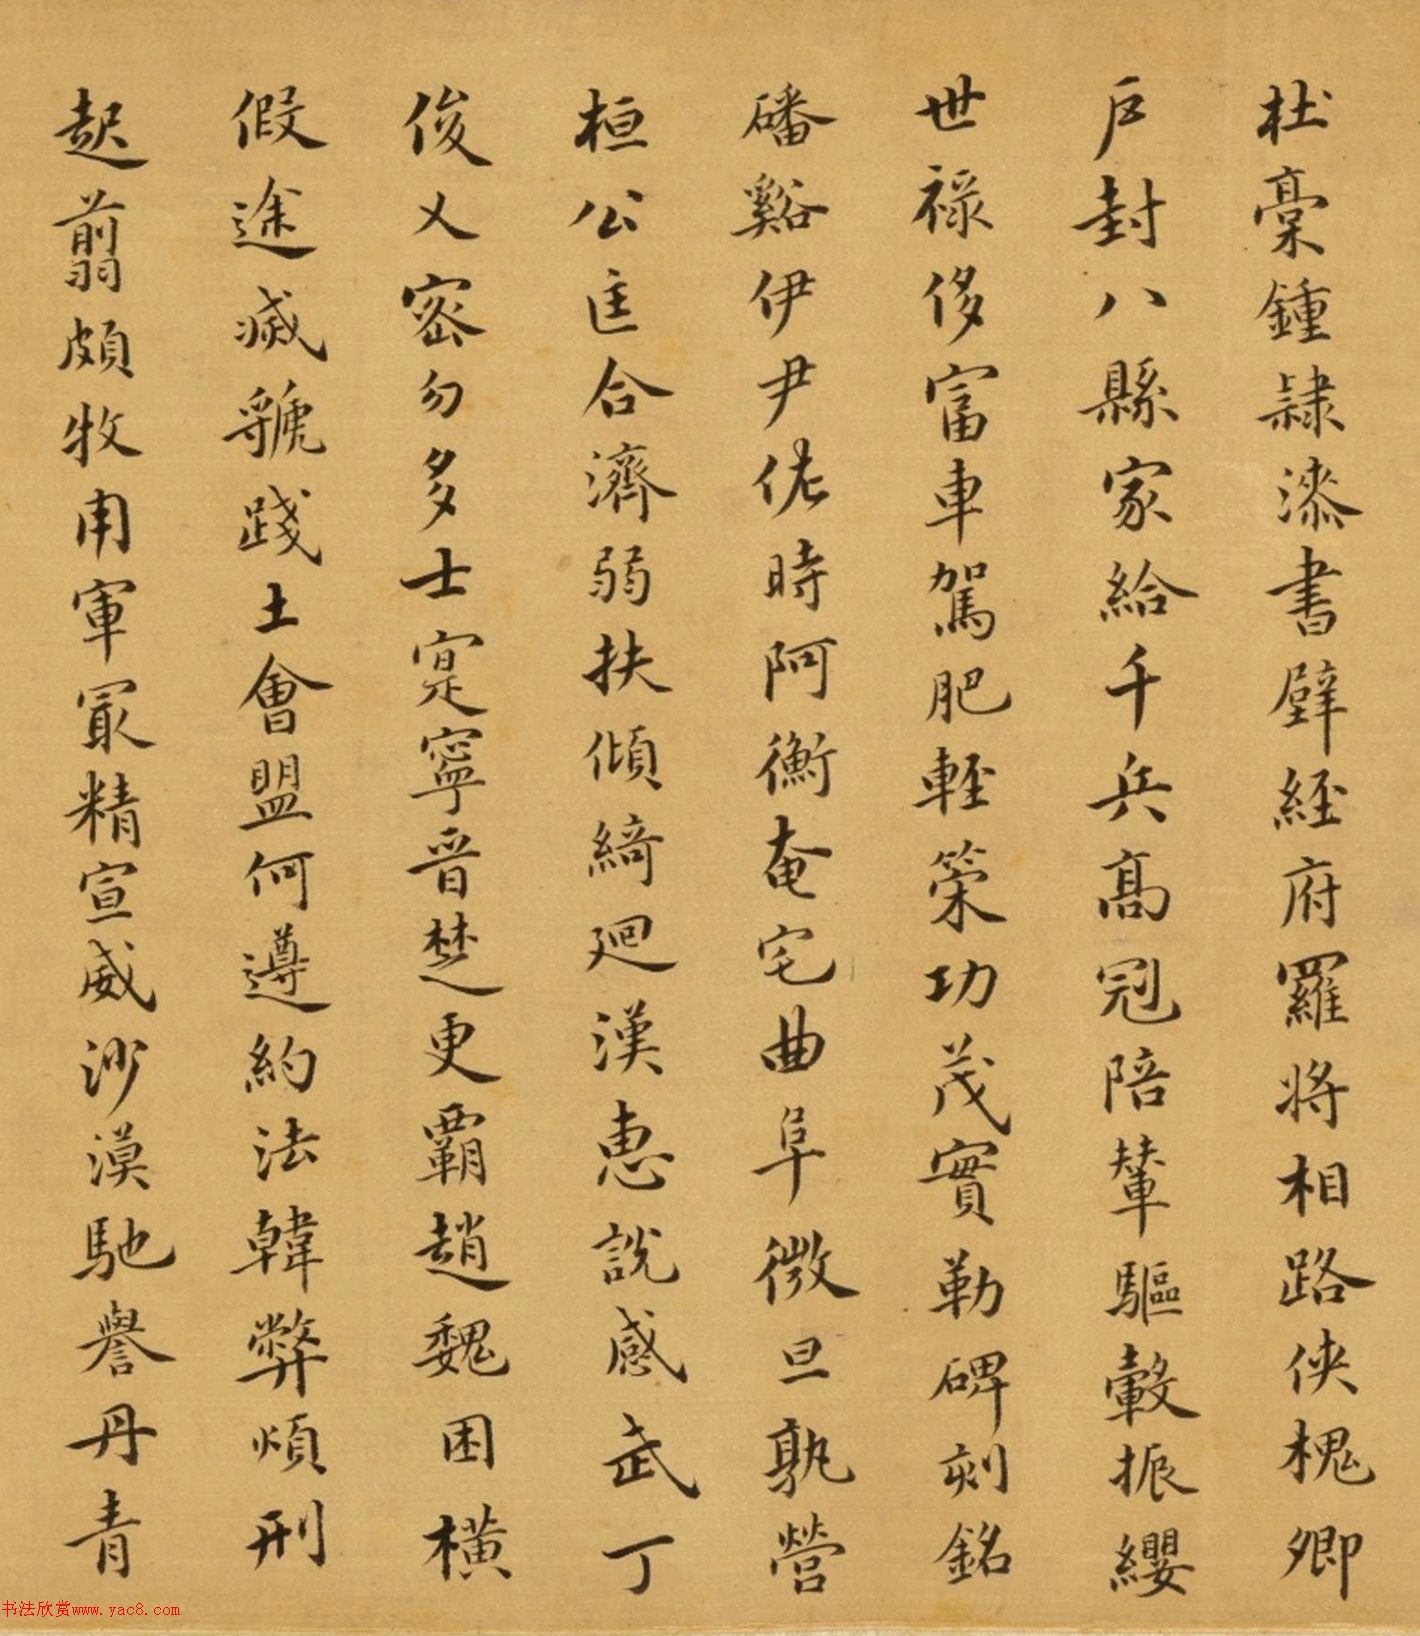 杜稾鍾隷漆書壁經府羅將相路俠槐卿
戶封八縣家給千兵高冠陪輦驅轂振纓
世祿侈富車駕肥輕策功茂實勒碑刻銘
磻谿伊尹佐時阿衡奄宅曲阜微旦孰營
桓公匡合濟弱扶傾綺迴漢惠說感武丁
俊乂密勿多士寔寧晉楚更霸趙魏困橫
假途滅虢踐土會盟何遵約法韓弊煩刑
起翦頗牧用軍最精宣威沙漠馳譽丹青
书法欣赏www.yac8.com